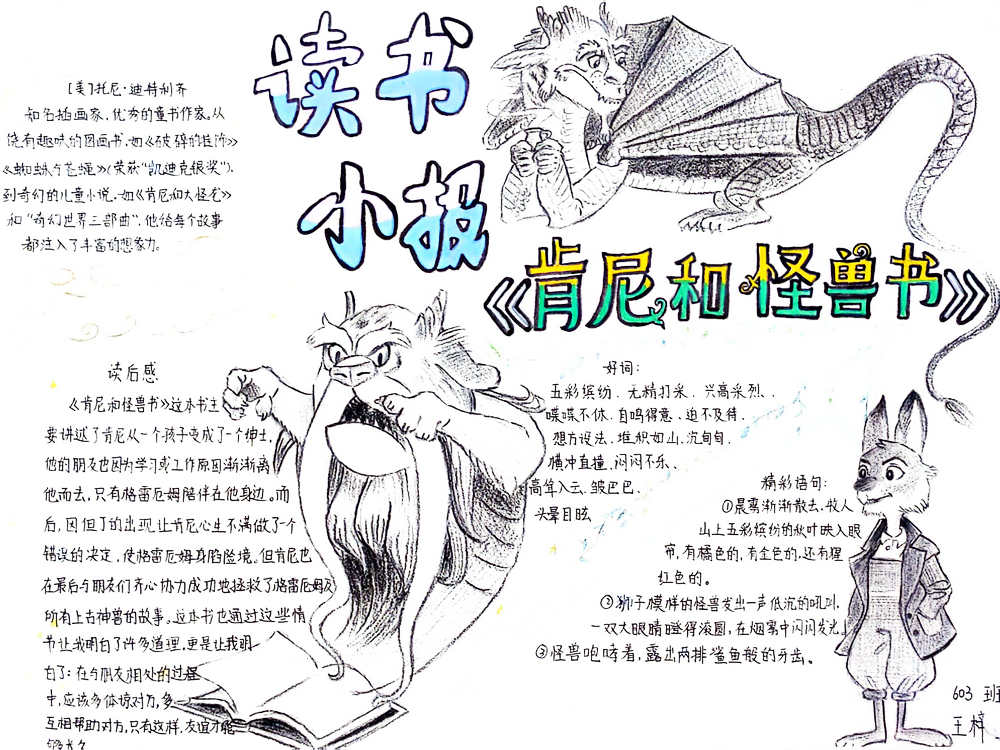 读书
小报
《肯尼和怪兽书》
[美]托尼·迪特利齐
知名插画家，优秀的童书作家。从
饶有趣味的图画书，如《破碎的挂饰》
《蜘蛛与苍蝇》（荣获“凯迪克银奖”），
到奇幻的儿童小说，如《肯尼和大怪龙》
和“奇幻世界三部曲”，他给每个故事
都注入了丰富的想象力。
读后感
《肯尼和怪兽书》这本书主
要讲述了肯尼从一个孩子变成了一个绅士，
他的朋友也因为学习或工作原因渐渐离
他而去，只有格雷厄姆陪伴在他身边。而
后，因但丁的出现，让肯尼心生不满做了个
错误的决定，使格雷厄姆身陷险境。但肯尼也
在最后与朋友们齐心协力成功地拯救了格雷厄姆及
所有上古神兽的故事。这本书也通过这些情
节让我明白了许多道理，更是让我明
白了：在与朋友相处的过程
中，应该多体谅对方，多
互相帮助对方，只有这样，友谊才能
够长久
好词：
五彩缤纷、无精打采、兴高采烈、
喋喋不休、自鸣得意、迫不及待、
想方设法、堆积如山、沉甸甸、
横冲直撞、闷闷不乐、
高耸入云、皱巴巴、
头晕目眩
精彩语句：
①晨雾渐渐散去，牧人
山上五彩缤纷的秋叶映入眼
帘，有橘色的，有金色的，还有猩
红色的。
②狮子模样的怪兽发出一声低沉的吼叫，
一双大眼睛瞪得滚圆，在烟雾中闪闪发光。
③怪兽咆哮着，露出两排鲨鱼般的牙齿。
603 班
王梓